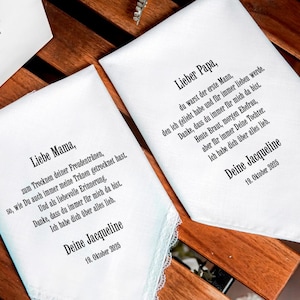 Liebe Mama,
zum Trocknen deiner Freudentränen,
so, wie Du auch immer meine Tränen getrocknet hast.
Und als liebevolle Erinnerung.
Danke, dass du immer für mich da bist.
Ich habe dich über alles lieb.
Deine Jacqueline
19. Oktober 2025
Lieber Papa,
du warst der erste Mann,
den ich geliebt habe und für immer lieben werde.
Danke, dass du immer für mich da bist.
Heute Braut, morgen Ehefrau,
aber für immer Deine Tochter.
Ich habe dich über alles lieb.
Deine Jacqueline
19. Oktober 2025